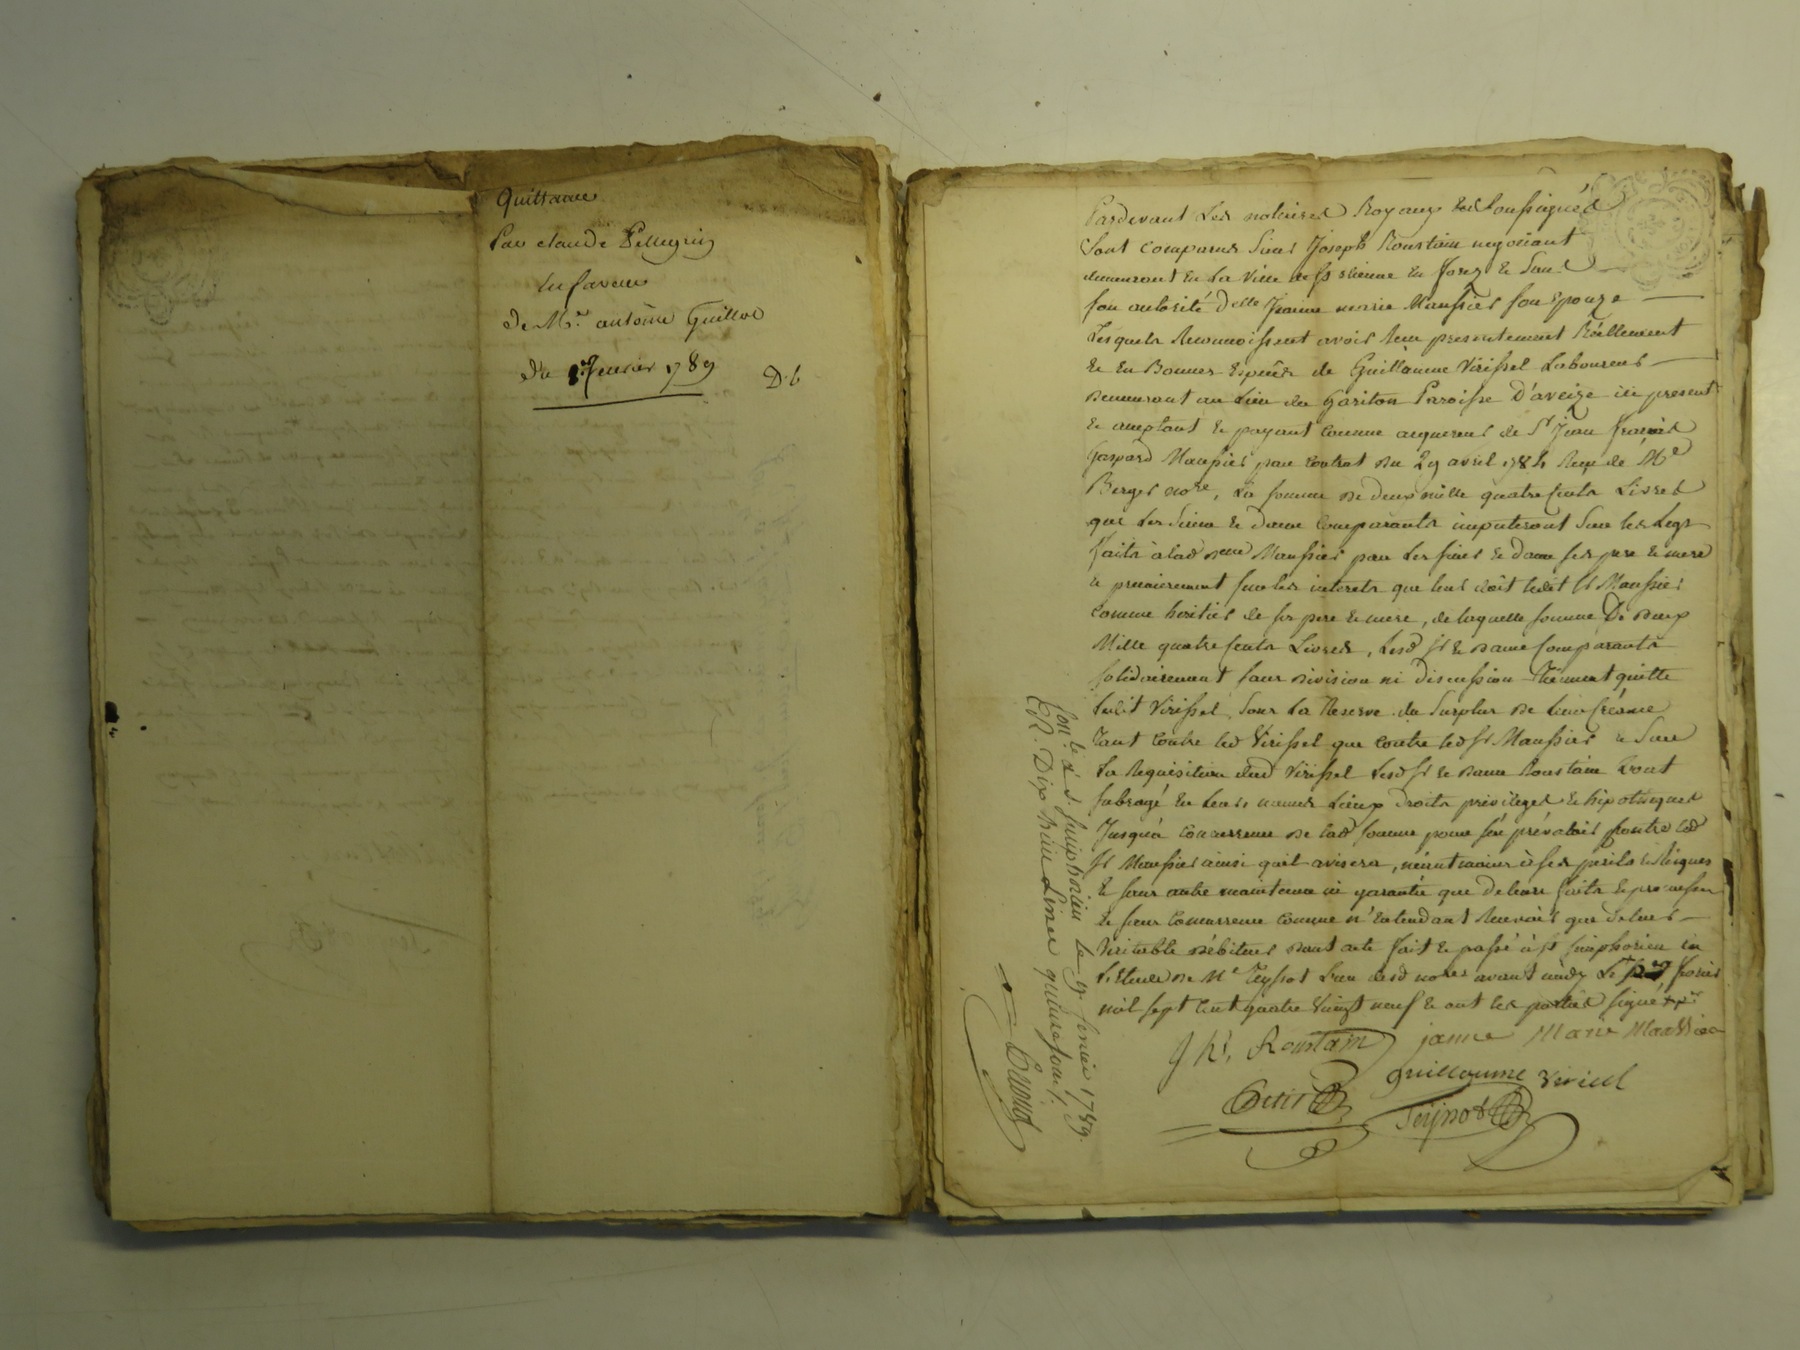 Quittance
Par claude Pellegrin
En faveur
de Mr. antoine Guillot
Du 1er fevrier 1789
D. 6
Pardevant Les notaires Royaux soussignés
Sont comparus Sieur Joseph Roustain negociant
demeurant en La ville de st etienne en forez & Sous
son autorité Delle Jeanne marie Maussier son Epouze
Lesquels Reconnoissent avoir Reçu presentement Réellement
& en Bonnes Espèces de Guillaume Virissel Laboureur
demeurant au Lieu du Gariton Paroisse D'aveize ici present
& acceptant & payant comme acquereur de Sr Jean françois
Gaspard Maussier par contrat du 29 avril 1784 Reçu de Me
Berger nore, La somme de deux mille quatre cents Livres
que Les Sieur & dame comparants imputeront Sur les Legs
faits à lad demelle Maussier par Les sieur & dame ses pere & mere
& premierement sur les interets que leur doit ledit Sr Maussier
comme heritier de ses pere & mere, de laquelle somme De deux
Mille quatre cents Livres, Lesd Sr & Dame comparants
solidairement sans division ni discussion tiennent quitte
Ledit Virissel, Sous La Reserve du Surplus de Leur créance
Tant contre led Virissel que contre led Sr Maussier & Sur
La Requisition dud Virissel Lesd Sr & Dame Roustain L'ont
subrogé En Leurs noms Lieux Droits privileges & hipoteques
Jusqu'à concurrence de lad somme pour s'en prévaloir contre led
Sr Maussier ainsi qu'il avisera, néantmoins à ses perils & Risques
& sans autre maintenue ni garantie que de leurs faits & promesses
& sans concurrence comme n'Entendant Recevoir que de leur
Veritable débiteur dont acte fait & passé à st simphorien en
L'Etude de Me Teyssot L'un desd nores avant midy Le fevrier
mil sept cent quatre vingt neuf & ont les parties signé
Jh. Roustain janne Marie Maussier
guillaume virisel
Petit Teijssot
Conlé à S. simphorien le 9 fevrier 1789.
R. Dix huit Livres quinze sous.